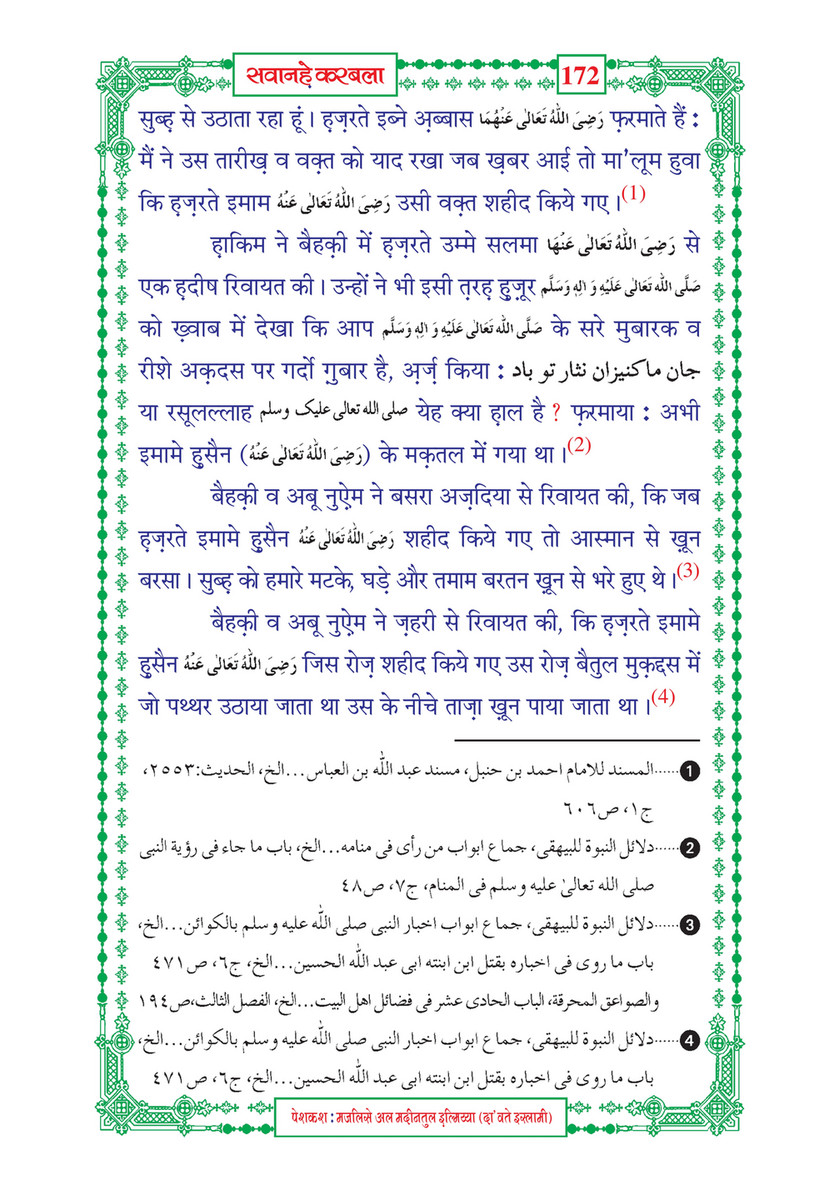 सवानहे करबला
172
सुब्ह़ से उठाता रहा हूं। ह़ज़रते इब्ने अ़ब्बास رَضِىَ اللّٰهُ تَعَالٰى عَنْهُمَا फ़रमाते हैं :
मैं ने उस तारीख़ व वक़्त को याद रखा जब ख़बर आई तो मा'लूम हुवा
कि ह़ज़रते इमाम رَضِىَ اللّٰهُ تَعَالٰى عَنْهُ उसी वक़्त शहीद किये गए।(1)
ह़ाकिम ने बैहक़ी में ह़ज़रते उम्मे सलमा رَضِىَ اللّٰهُ تَعَالٰى عَنْهَا से
एक ह़दीष रिवायत की। उन्हों ने भी इसी त़रह़ हुज़ूर صَلَّى الله تَعَالٰى عَلَيْهِ وَ اٰلِهٖ وَسَلَّم
को ख़्वाब में देखा कि आप صَلَّى الله تَعَالٰى عَلَيْهِ وَ اٰلِهٖ وَسَلَّم के सरे मुबारक व
रीशे अक़दस पर गर्दो ग़ुबार है, अ़र्ज़ किया : جان ما کنیزان نثار تو باد
या रसूलल्लाह صلی الله تعالی علیک وسلم येह क्या ह़ाल है ? फ़रमाया : अभी
इमामे ह़ुसैन (رَضِىَ اللّٰهُ تَعَالٰى عَنْهُ) के मक़तल में गया था।(2)
बैहक़ी व अबू नुऐ़म ने बसरा अज़दिया से रिवायत की, कि जब
ह़ज़रते इमामे ह़ुसैन رَضِىَ اللّٰهُ تَعَالٰى عَنْهُ शहीद किये गए तो आस्मान से ख़ून
बरसा। सुब्ह़ को हमारे मटके, घड़े और तमाम बरतन ख़ून से भरे हुए थे।(3)
बैहक़ी व अबू नुऐ़म ने ज़हरी से रिवायत की, कि ह़ज़रते इमामे
ह़ुसैन رَضِىَ اللّٰهُ تَعَالٰى عَنْهُ जिस रोज़ शहीद किये गए उस रोज़ बैतुल मुक़द्दस में
जो पथ्थर उठाया जाता था उस के नीचे ताज़ा ख़ून पाया जाता था।(4)
❶......المسند للامام احمد بن حنبل، مسند عبد اللّٰه بن العباس...الخ، الحديث:٢٥٥٣،
ج١، ص٦٠٦
❷......دلائل النبوة للبيهقى، جماع ابواب من رأى فى منامه...الخ، باب ما جاء فى رؤية النبى
صلى الله تعالىٰ عليه وسلم فى المنام، ج٧، ص٤٨
❸......دلائل النبوة للبيهقى، جماع ابواب اخبار النبى صلى اللّٰه عليه وسلم بالكوائن...الخ،
باب ما روى فى اخباره بقتل ابن ابنته ابى عبد اللّٰه الحسين...الخ، ج٦، ص٤٧١
والصواعق المحرقة، الباب الحادى عشر فى فضائل اهل البيت...الخ، الفصل الثالث،ص١٩٤
❹......دلائل النبوة للبيهقى، جماع ابواب اخبار النبى صلى اللّٰه عليه وسلم بالكوائن...الخ،
باب ما روى فى اخباره بقتل ابن ابنته ابى عبد اللّٰه الحسين...الخ، ج٦، ص٤٧١
पेशकश : मजलिसे अल मदीनतुल इल्मिय्या (दा'वते इस्लामी)